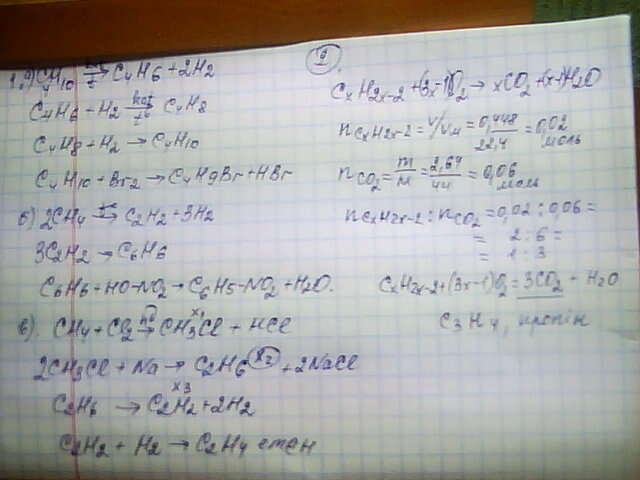 1. а) C4H10 kat→t C4H6 + 2H2
C4H6 + H2 kat→t° C4H8
C4H8 + H2 → C4H10
C4H10 + Br2 → C4H9Br + HBr
б) 2CH4 t°→ C2H2 + 3H2
3C2H2 → C6H6
C6H6 + HO-NO2 → C6H5-NO2 + H2O.
в). CH4 + Cl2 → CH3Cl + HCl
x1
2CH3Cl + Na → C2H6 x2 + 2NaCl
x3
C2H6 → C2H2 + 2H2
C2H2 + H2 → C2H4 етен
CxH2x-2 + (3x-1)O2 → xCO2 + (x-1)H2O
nCxH2x-2 = V/VM = 0,448/22,4 = 0,02 моль
nCO2 = m/M = 2,64/44 = 0,06 моль
nCxH2x-2 : nCO2 = 0,02 : 0,06 =
= 2 : 6 =
= 1 : 3
CxH2x-2 + (3x-1)O2 = 3CO2 + H2O
C3H4, пропін